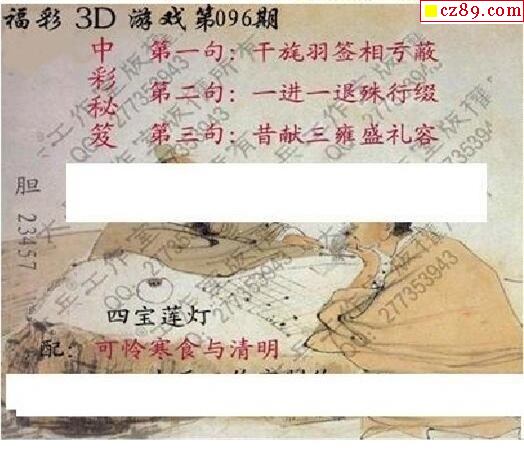 cz89.com
福彩 3D 游戏 第096期
中彩秘笈
第一句：干旄羽签相亏蔽
第二句：一进一退殊行缀
第三句：昔献三雍盛礼容
胆 23457
四宝莲灯
配：可怜寒食与清明
QQ:277353943